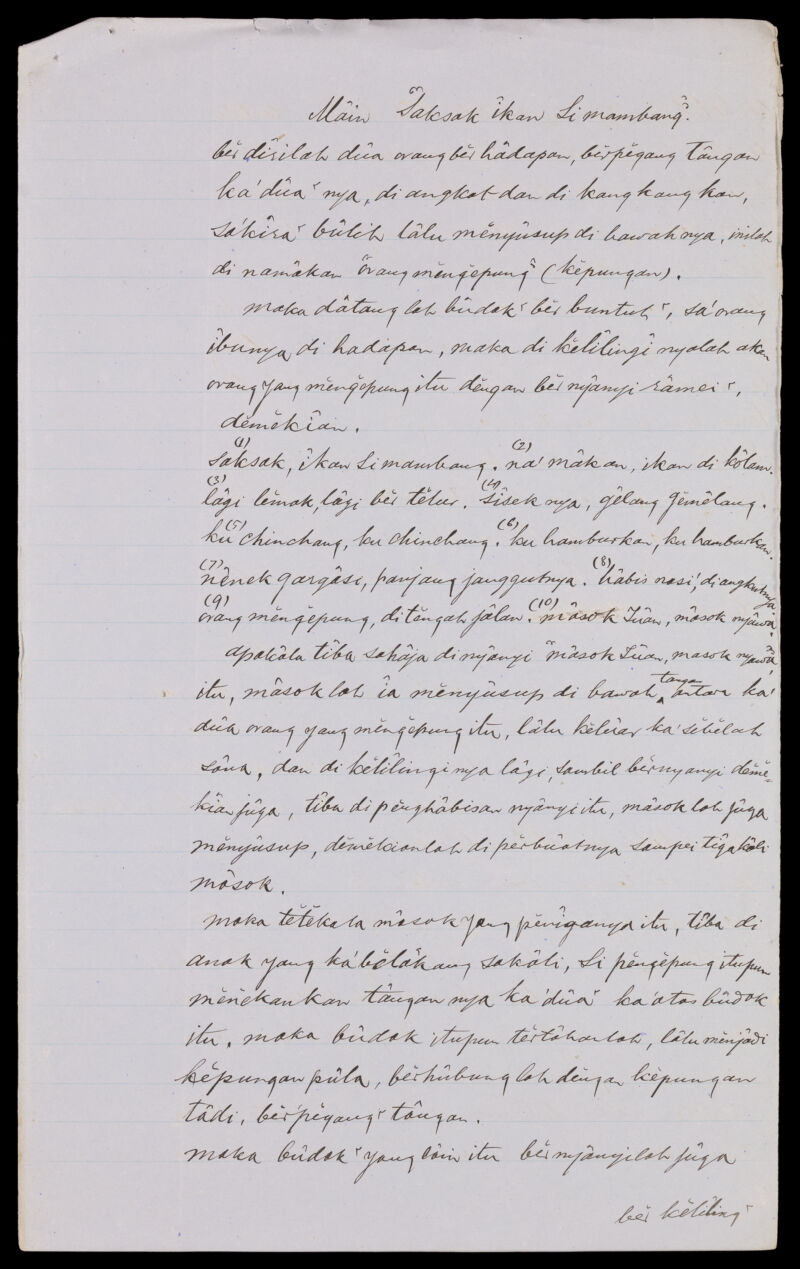 Mâin "Saksak îkan Si mambang".
bĕr dîsilah dûa orang bĕr hâdapan, bĕrpĕgang tângan
ka' dûaʳ nya, di angkat dan di kangkang kan,
sa'kîraʳ bûlih lâlu mĕnyûsup di bawah nya, inilah
di namâkan "ôrang mĕngĕpung" (kĕpungan).
maka dâtang lah bûdakʳ bĕr buntutʳ, sa'orang
îbunya di hadapan, maka di kĕlîlingî nyalah akan
orang yang mĕngĕpung itu dĕngan bĕr nyânyi râmeiʳ,
dĕmĕkîan.
(1) saksak, îkan Si mambang. (2) na' mâkan, ikan di kôlam.
(3) lâgi lĕmak, lâgi bĕr tĕlur. (4) sîsek nya, gĕlang gĕmĕlang.
(5) ku chinchang, ku chinchang. (6) ku hamburkan, ku hamburkan.
(7) nênek gargâsi, panjang janggutnya. (8) hâbis nasi, di angkutnya
(9) orang mĕngĕpung, di tĕngah jâlan. (10) mâsok Tûan, mâsok nyâwâ.
apakâla tîba sahâja di nyânyi "mâsok Tûan, masok nyawâ"
itu, mâsok lah îa mĕnyûsup di bawah tangan antara ka'
dûa orang yang mĕngĕpung itu, lâlu kĕlûar ka' sĕbĕlah
sâna, dan di kĕlîlingi nya lâgi, sambil bĕrnyanyi dĕmĕ-
kîan jûga, tîba di pĕnghâbisan nyânyi itu, mâsok lah jûga
mĕnyûsup, dĕmĕkianlah di pĕrbûatnya sampei tîga kâli
mâsok.
maka tĕtĕkala mâsok yang pĕntiganya itu, tîba di
anak yang ka'bĕlâkang sakâli, Si pĕngĕpung itupun
mĕnĕkankan tângan nya ka'dûaʳ ka'atas bûdak
itu, maka bûdak itupun tĕrtâhanlah, lâlu mĕnjâdi
kĕpungan pûla, bĕrhûbung lah dĕngan kĕpungan
tâdi, bĕrpĕgangʳ tângan.
maka bûdakʳ yang lâin itu bĕr nyânyilah jûga
bĕr kĕlîlingʳ